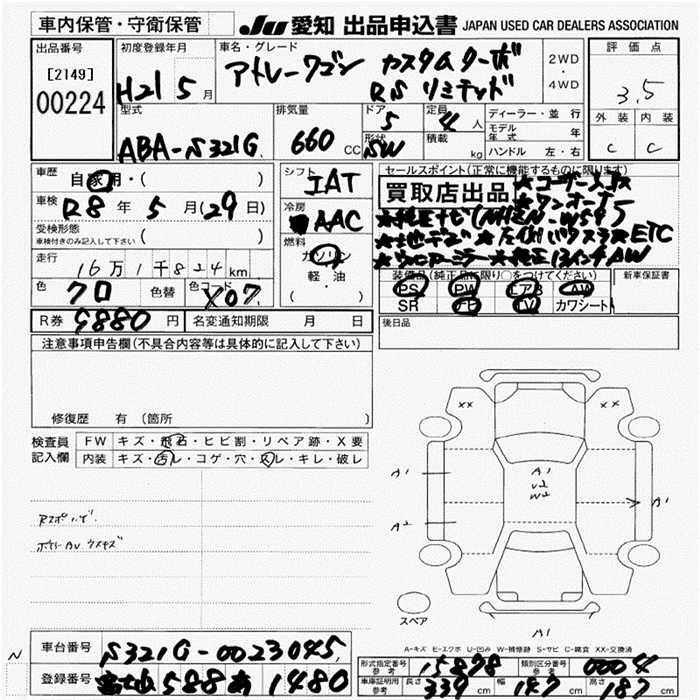 車内保管・守衛保管
JU 愛知 出品申込書 JAPAN USED CAR DEALERS ASSOCIATION
出品番号
[2149]
00224
初度登録年月
H21 5月
車名・グレード
アトレーワゴン カスタムターボ
RS リミテッド
2WD
・
4WD
評価点
3.5
外装 内装
C C
型式
ABA-S321G
排気量
660 CC
ドア
5
形状
SW
定員
4人
積載
kg
ディーラー・並行
モデル年式 年
ハンドル 左・右
車歴
自家用・( )
車検
R8年 5月(29日)
受検形態
車検付きのみ記入して下さい ( )
走行
16万1千824km
色
クロ
色替
色コード
X07
シフト
IAT
冷房
AAC
燃料
ガソリン
軽・油
( )
セールスポイント(正常に機能するものに限ります)
買取店出品
★ワンオーナー
★ETC
装備品(純正品に限り○をつけてください)
PS PW エアB AW
SR TV カワシート
新車保証書
後日品
R券 9880円
名変通知期限 月 日
注意事項申告欄(不具合内容等は具体的に記入して下さい)
修復歴 有 (箇所
検査員
記入欄
FW キズ・飛石・ヒビ割・リペア跡・X要
内装 キズ・汚レ・コゲ・穴・スレ・キレ・破レ
XX XX
A1
A2
A1
U2
W2
A1
A1
スペア
A-キズ E-エクボ U-凹み W-補修跡 S-サビ C-腐食 XX-交換済
N
車台番号 S321G-0023045
登録番号 588 あ 1480
形式指定番号
参考
15898
類別区分番号
参考
0004
車庫証明用
参考
長さ 339cm
幅 147cm
高さ 187cm